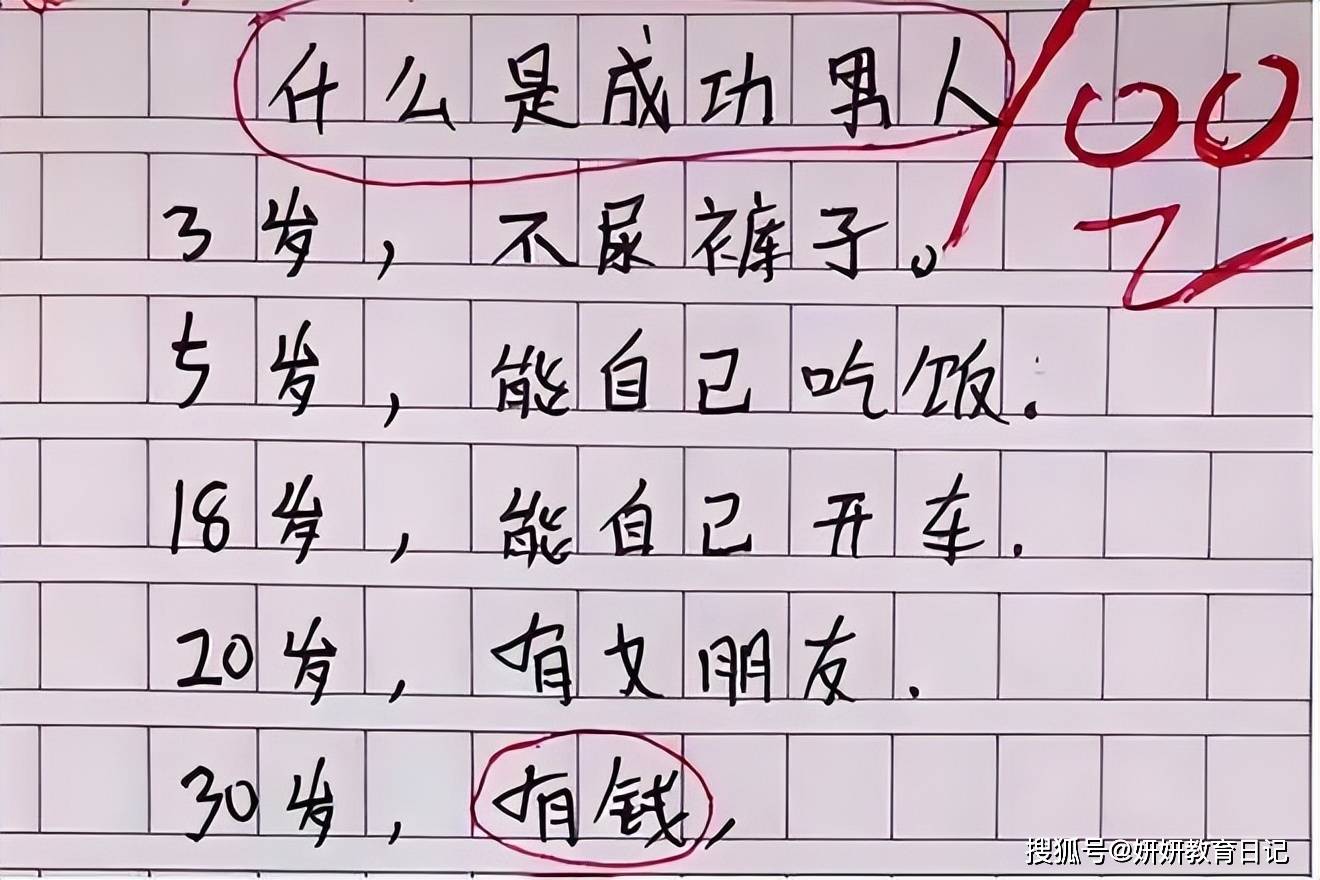 什么是成功男人
100
3岁，不尿裤子。
5岁，能自己吃饭.
18岁，能自己开车.
20岁，有女朋友.
30岁，有钱，
搜狐号@妍妍教育日记